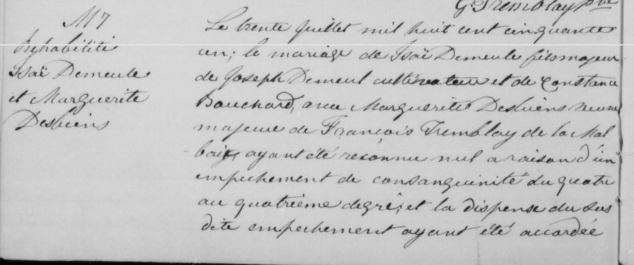 G. Tremblay Ptre
M7
Réhabilité
Isaï Demeule
et Marguerite
Desbiens
Le trente Juillet mil huit cent cinquante
un; le mariage de Isaï Demeule fils majeur
de Joseph Demeul cultivateur et de Constance
Bouchard, avec Marguerite Desbiens veuve
majeure de François Tremblay de la Mal
baie, ayant été reconnu nul a raison d'un
empechement de consanguinité du quatre
au quatrième degré, et la dispense du sus
dite empechement ayant été accordée